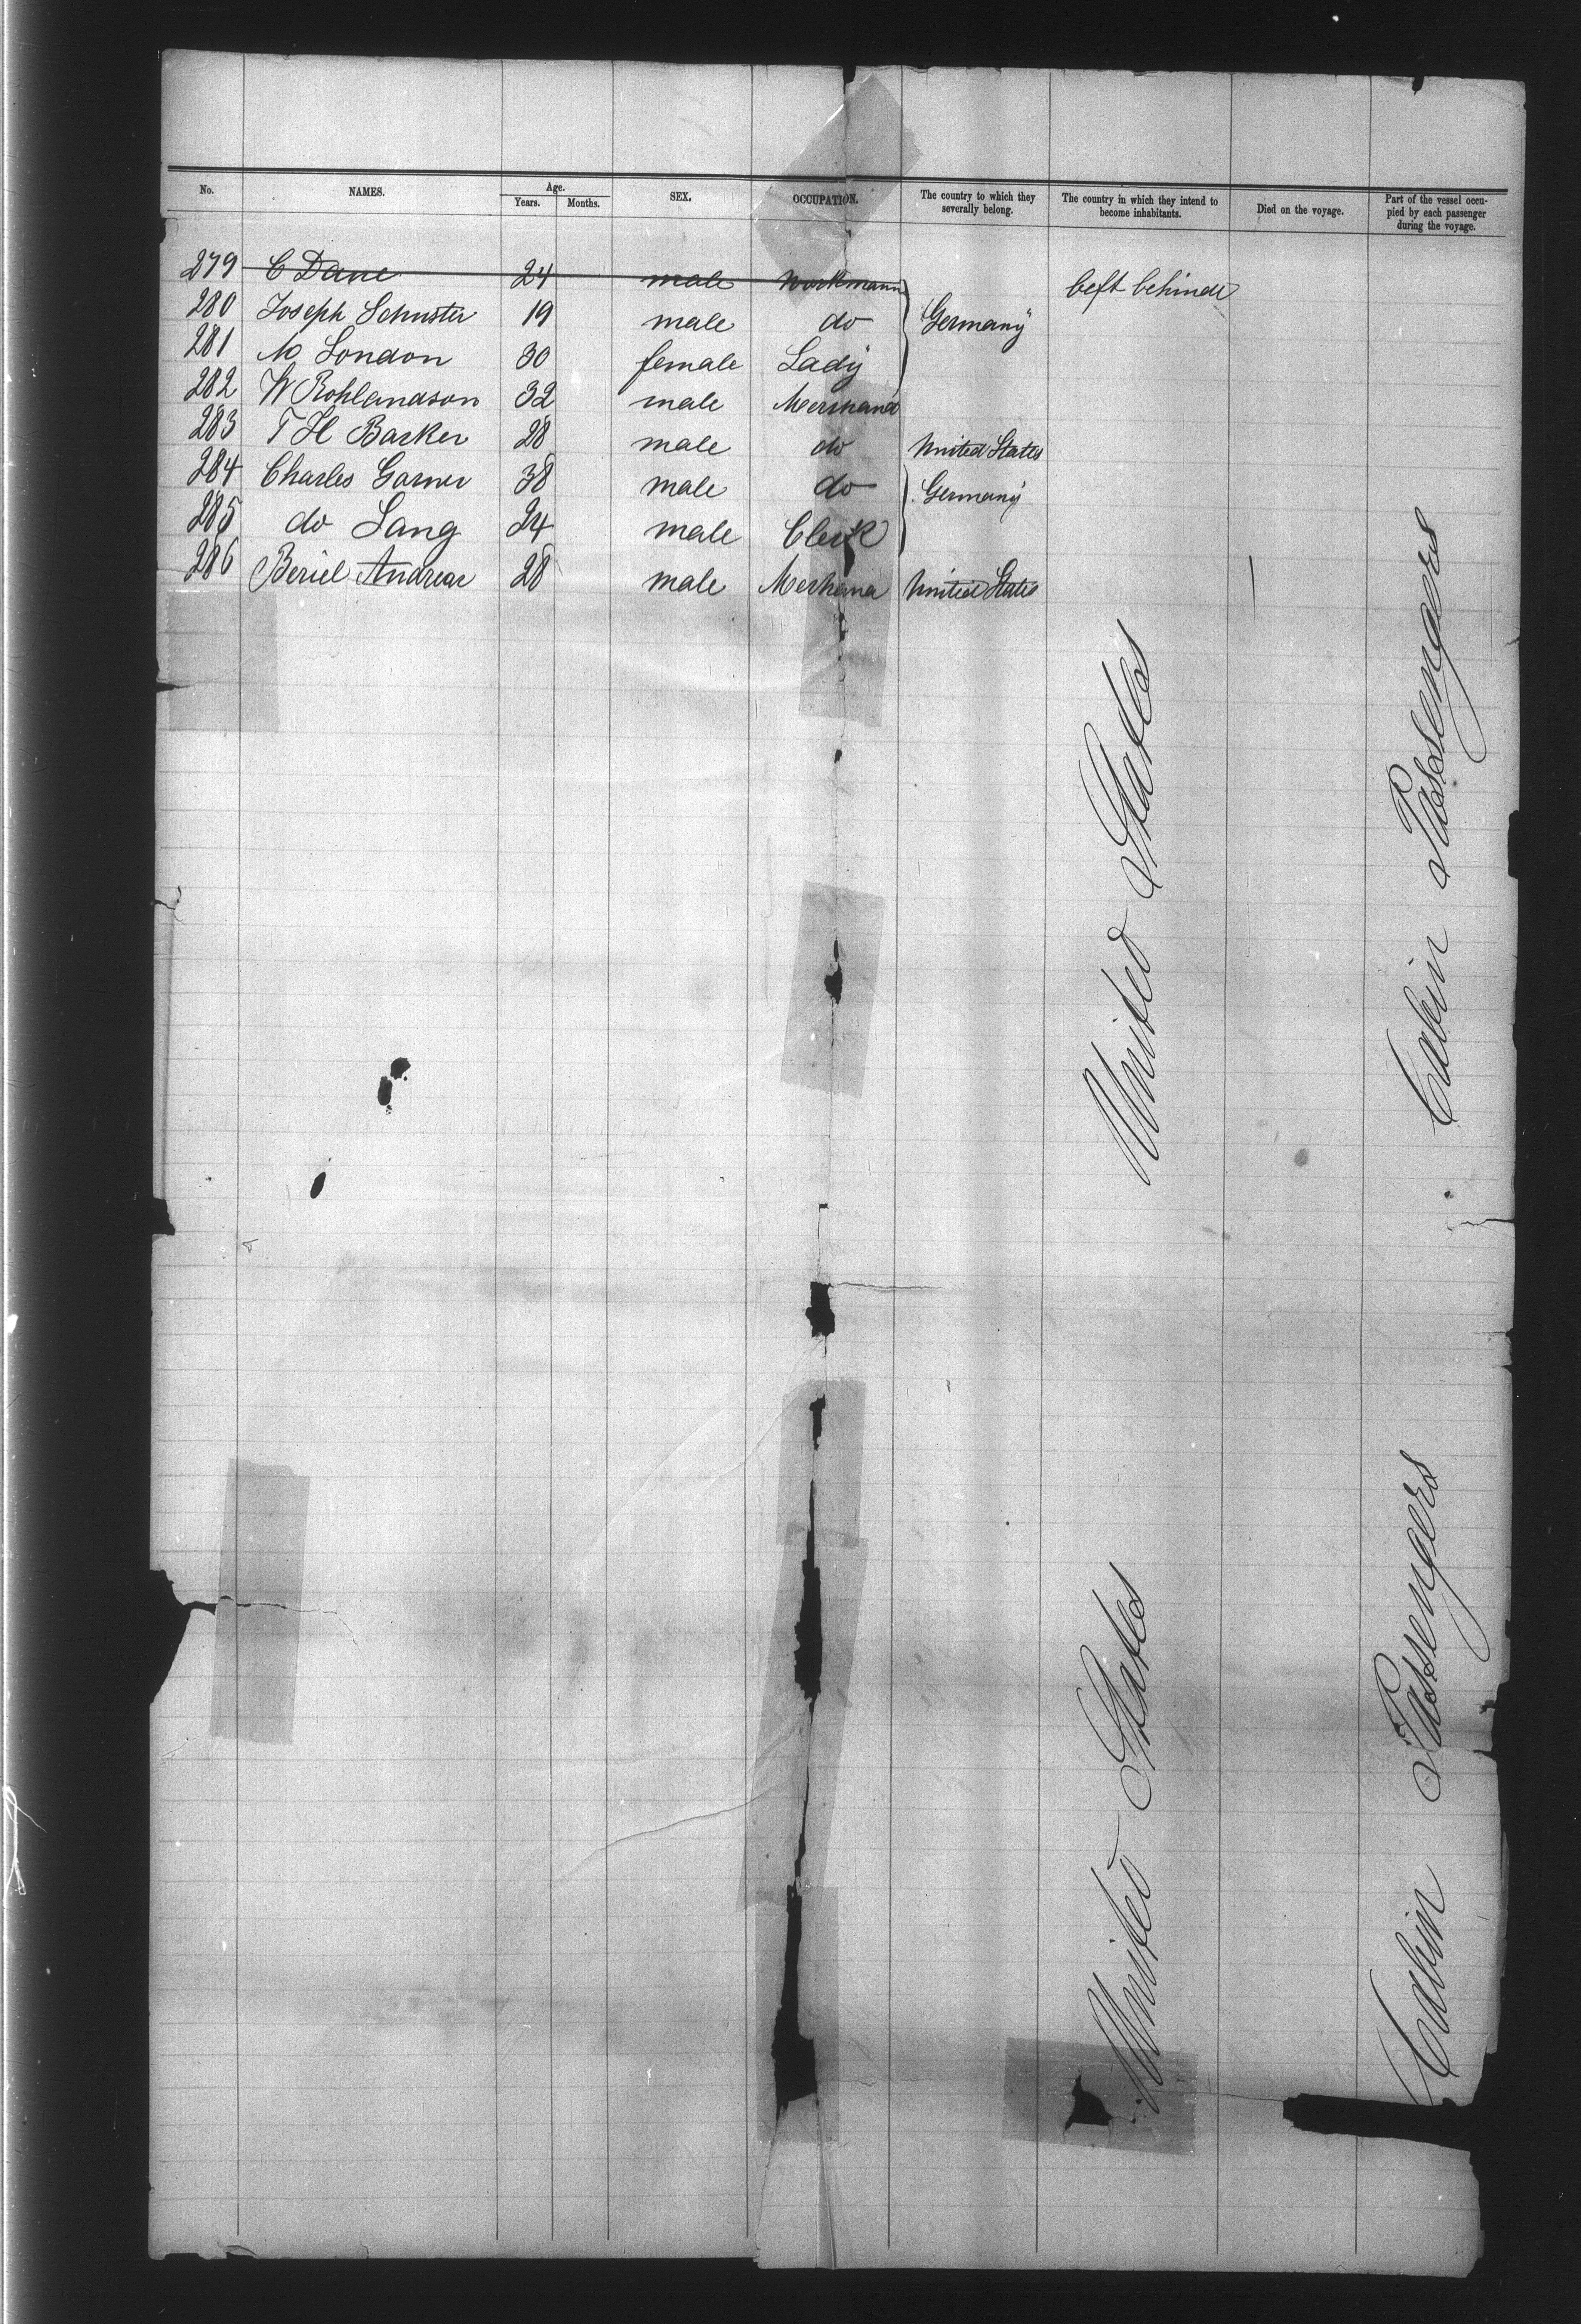 No. NAMES. Age. Years. Months. SEX. OCCUPATION. The country to which they severally belong. The country in which they intend to become inhabitants. Died on the voyage. Part of the vessel occupied by each passenger during the voyage.
279 C Dane 24 male Workmann left behinde
280 Joseph Schuster 19 male do Germany
281 M London 30 female Lady
282 W Rohlandson 32 male
283 T H Barker 28 male do United States
284 Charles Garner 38 male do Germany
285 do Lang 24 male Clerk
286 Beriel Andreas 28 male United States
United States
Cabin Passengers
United States
Cabin Passengers